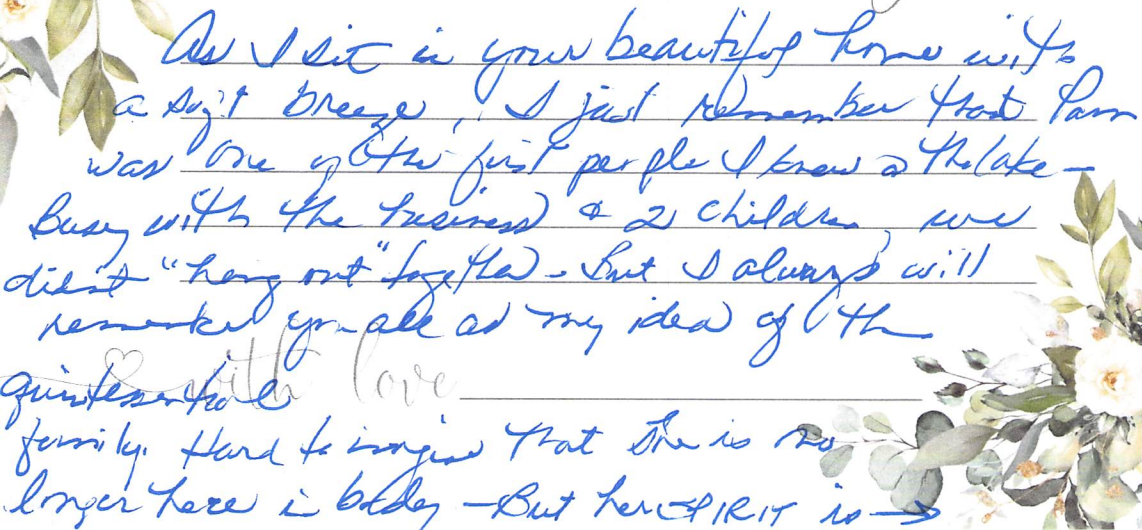 As I sit in your beautiful home with
a soft breeze, I just remember that Pam
was one of the first people I knew @ the lake -
Busy with the business & 2 children, we
didn't "hang out" together - But I always will
remember you all as my idea of the
with love
quintessential
family. Hard to imagine that she is no
longer here in body - But her SPIRIT is →